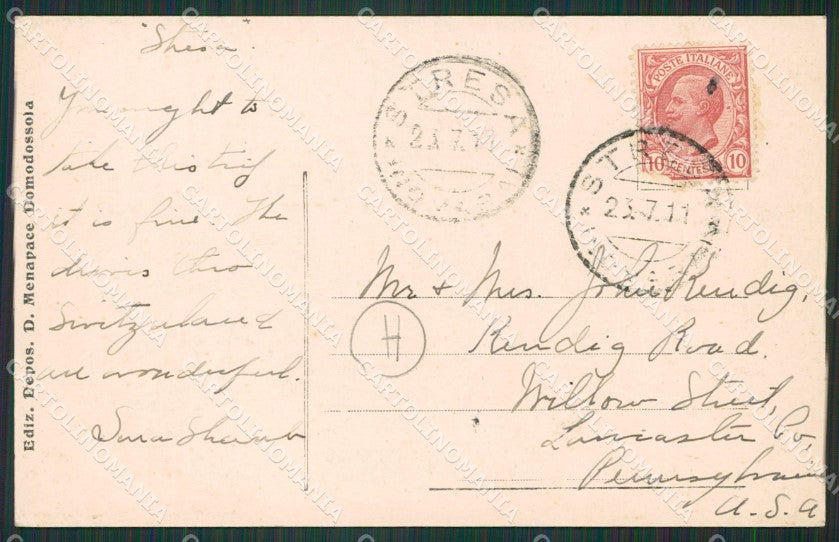 "Stresa".
You ought to
take this trip
it is fine. The
drives thro
Switzerland
are wonderful.
Sara
Ediz. Depos. D. Menapace Domodossola
STRESA
23.7.11
POSTE ITALIANE
10 10
STRESA
23.7.11
Mr & Mrs. John Kendig,
Kendig Road.
Willow Street,
Lancaster Co,
Pennsylvania
U.S.A
H
CARTOLINOMANIA